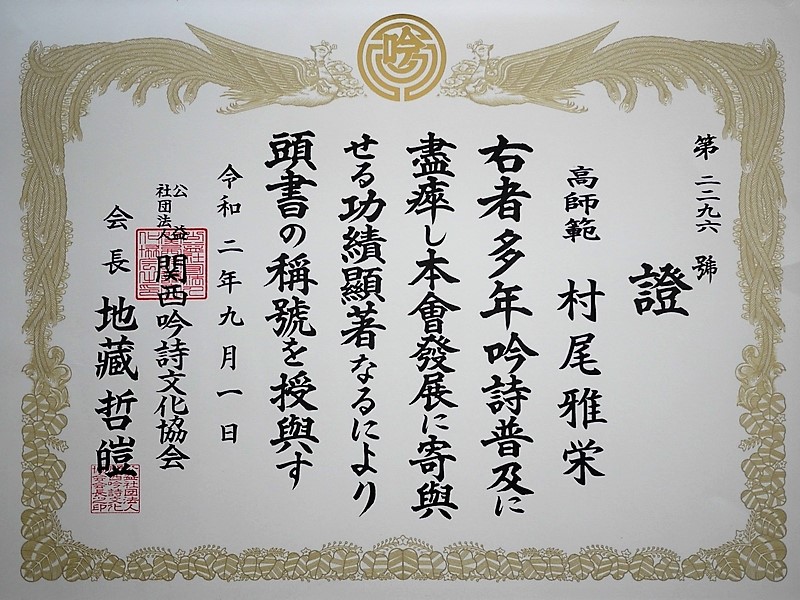 吟
第二二九六號
證
高師範 村尾雅栄
右者多年吟詩普及に
盡瘁し本會發展に寄與
せる功績顯著なるにより
頭書の稱號を授與す
令和二年九月一日
公益社団法人 関西吟詩文化協会
会長 地藏哲皚